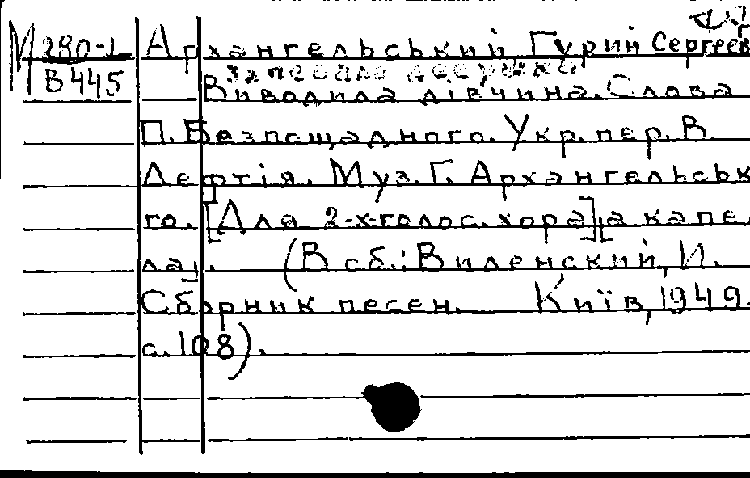 М 280-1
В 445
Архангельський Гурий Сергеев
запевала девушка
Виводила дівчина. Слова
П. Безпощадного. Укр. пер. В.
Дефтія. Муз. Г. Архангельськ
го. [Для 2-х голос. хора], [а капе
ла]. (В сб.: Виленский, И.
Сборник песен. Київ, 1949.
с. 108).